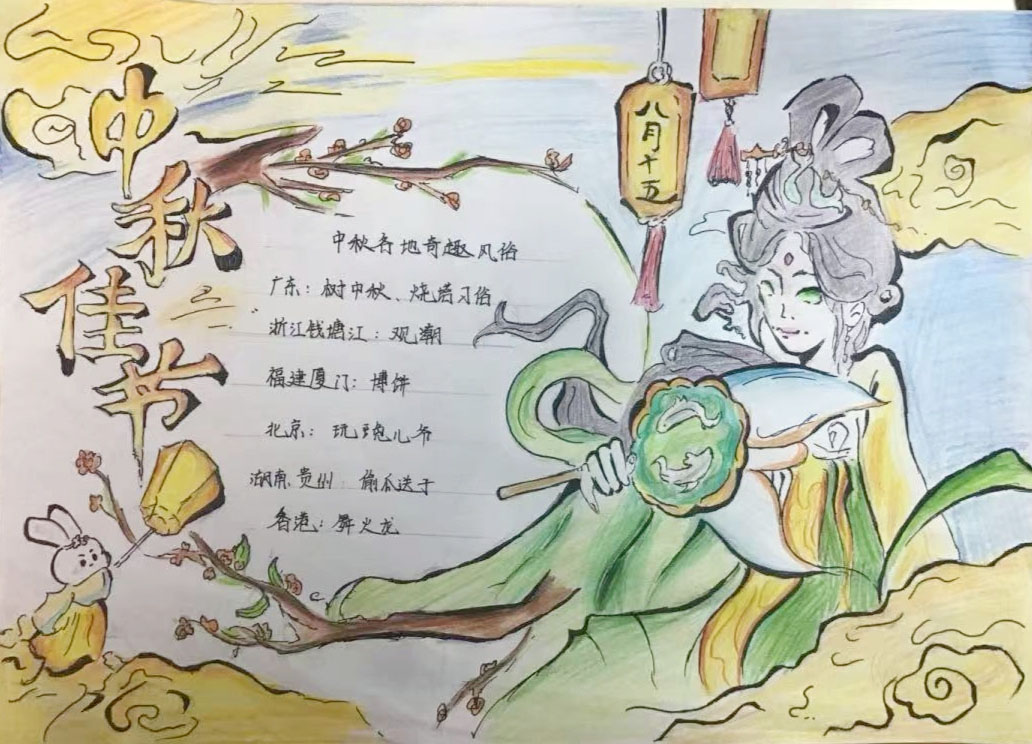 中秋佳节
八月十五
中秋各地奇趣风俗
广东：树中秋、烧塔习俗
浙江钱塘江：观潮
福建厦门：博饼
北京：玩兔儿爷
湖南、贵州：偷瓜送子
香港：舞火龙